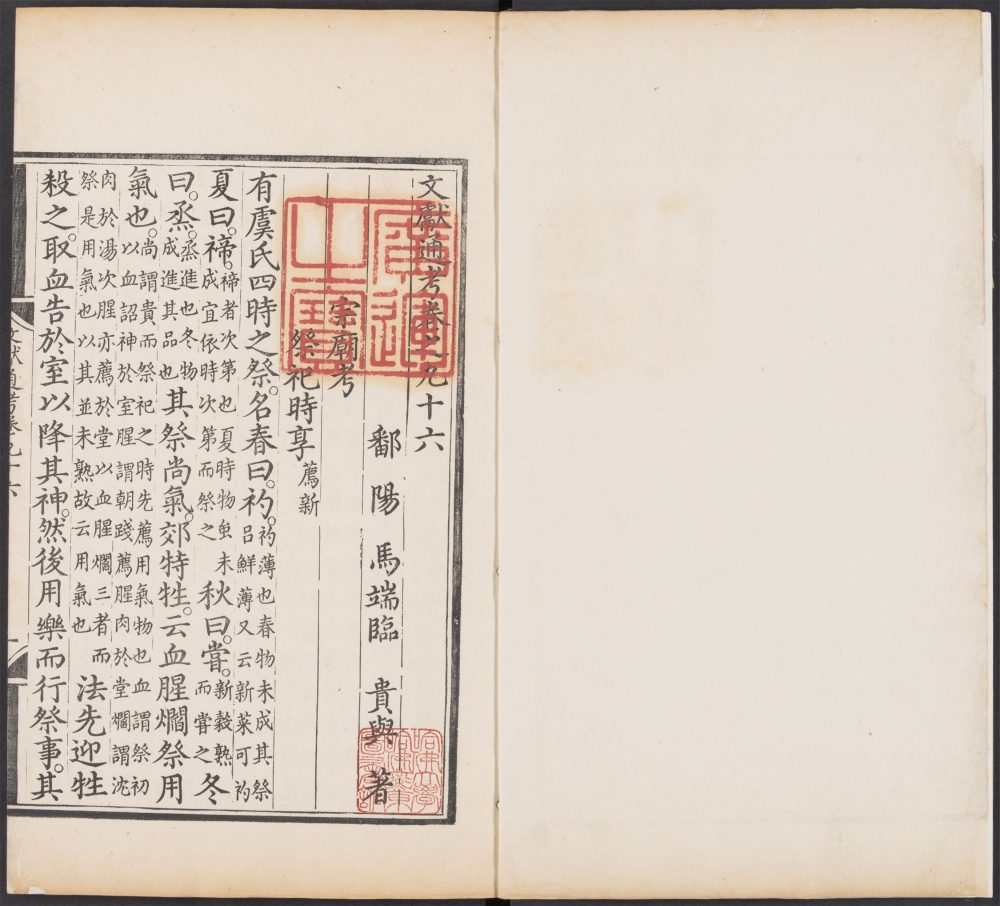 文獻通考卷之九十六
鄱陽馬端臨 貴與 著
宗廟考
祭祀時享 薦新
有虞氏四時之祭。名春曰。礿。礿薄也春物未成其祭品鮮薄又云新菜可礿
夏曰。禘。禘者次第也夏時物虫未成宜依時次第而祭之秋曰。嘗。新穀熟而嘗之冬
曰。烝。烝進也冬物成進其品也其祭尚氣。郊特牲。云血腥爓祭用
氣也。尚謂貴而祭祀之時先薦用氣物也血謂祭初以血詔神於室腥謂朝踐薦腥肉於堂爓謂沈
肉於湯次腥亦薦於堂以血腥爓三者而祭是用氣也以其並未熟故云用氣也法先迎牲
殺之取血告於室以降其神。然後用樂而行祭事。其
文獻通考卷九十六
一
廣運之寶